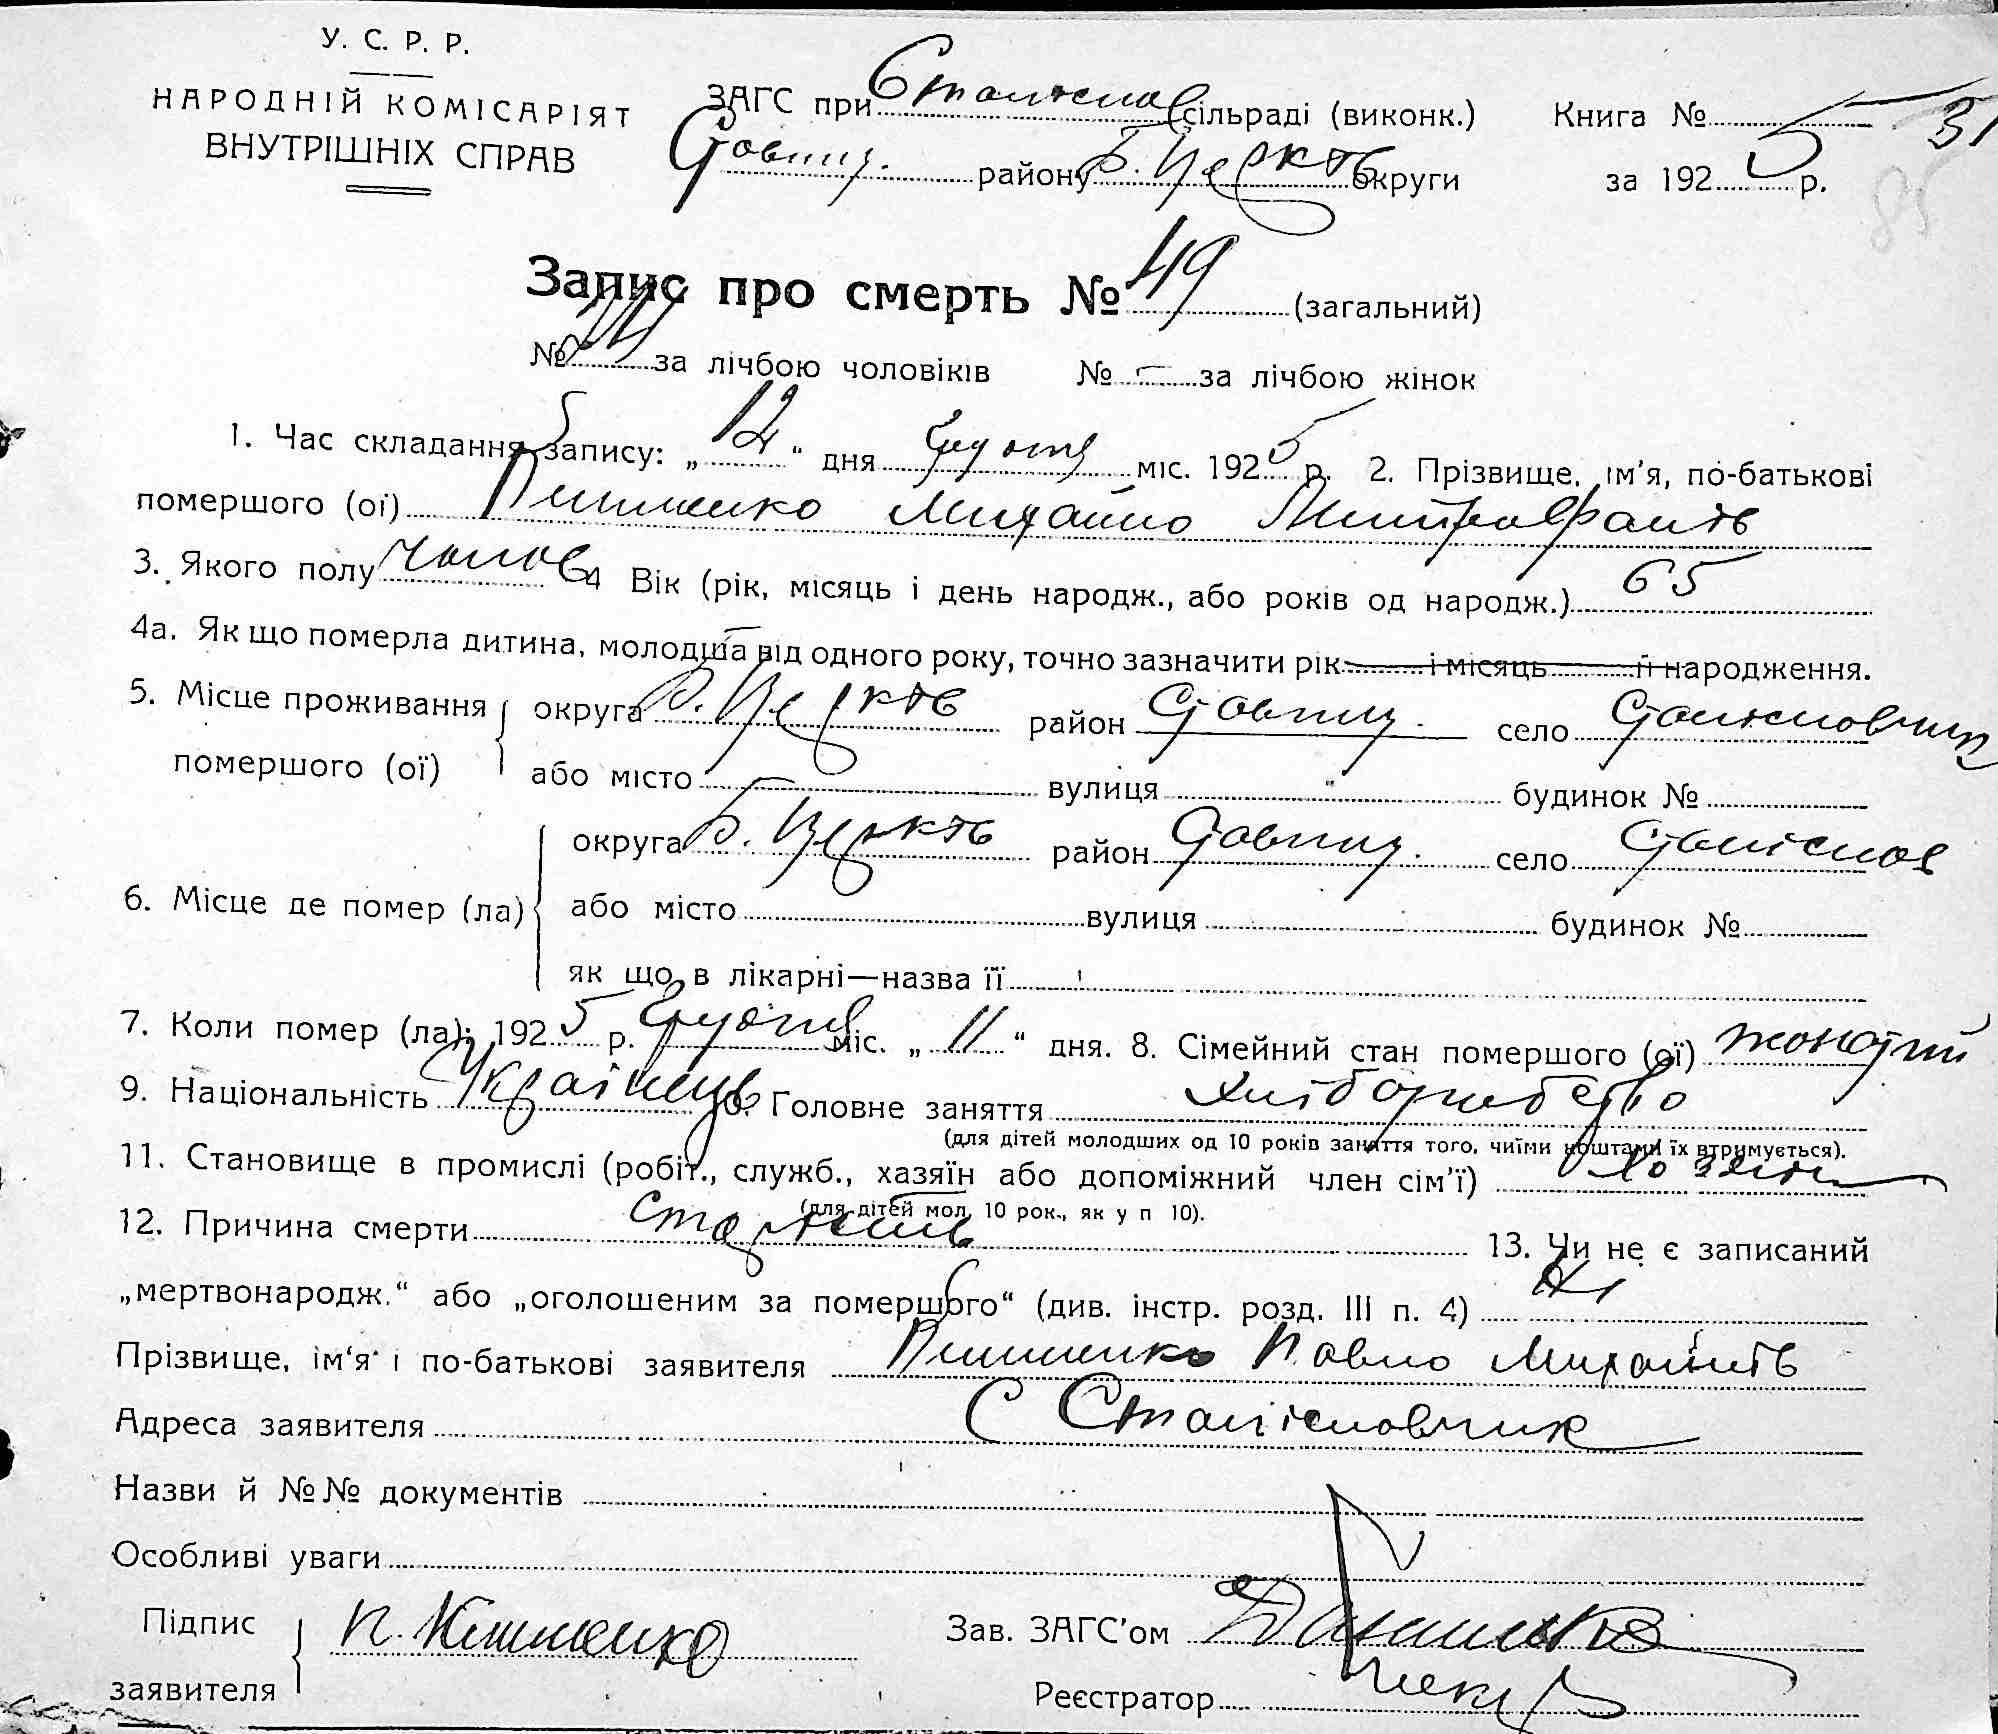 У. С. Р. Р.
НАРОДНІЙ КОМІСАРІЯТ
ВНУТРІШНІХ СПРАВ
ЗАГС при Станіслов сільраді (виконк.) Книга № 5 31
Ставищ. району Б. Церктв округи за 1925 р.
85
Запис про смерть № 49 (загальний)
№ за лічбою чоловіків № — за лічбою жінок
1. Час складання запису: „12“ дня Грудня міс. 1925 р. 2. Прізвище, ім'я, по-батькові
помершого (ої) Михайло Митрофантв
3. Якого полу чолов 4 Вік (рік, місяць і день народж., або років од народж.) 65
4а. Як що померла дитина, молодша від одного року, точно зазначити рік і місяць її народження.
5. Місце проживання помершого (ої) округа Б. Церктв район Ставищ. село Станіславчик
або місто вулиця " будинок №
6. Місце де помер (ла) округа Б. Церктв район Ставищ. село Станіслов
або місто вулиця будинок №
як що в лікарні—назва її
7. Коли помер (ла): 1925 р. Грудня міс. „11“ дня. 8. Сімейний стан помершого (ої) жонатий
9. Національність Українець 10. Головне заняття Хліборобство
(для дітей молодших од 10 років заняття того, чиїми коштами їх втримується).
11. Становище в промислі (робіт., служб., хазяїн або допоміжний член сім'ї) Хозяїн
(для дітей мол. 10 рок., як у п 10).
12. Причина смерти Старість 13. Чи не є записаний
„мертвонародж.“ або „оголошеним за помершого“ (див. інстр. розд. III п. 4) Ні
Прізвище, ім'я і по-батькові заявителя Павло Михайлтв
Адреса заявителя С Станіславчик
Назви й №№ документів
Особливі уваги
Підпис заявителя П.
Зав. ЗАГС'ом
Реєстратор